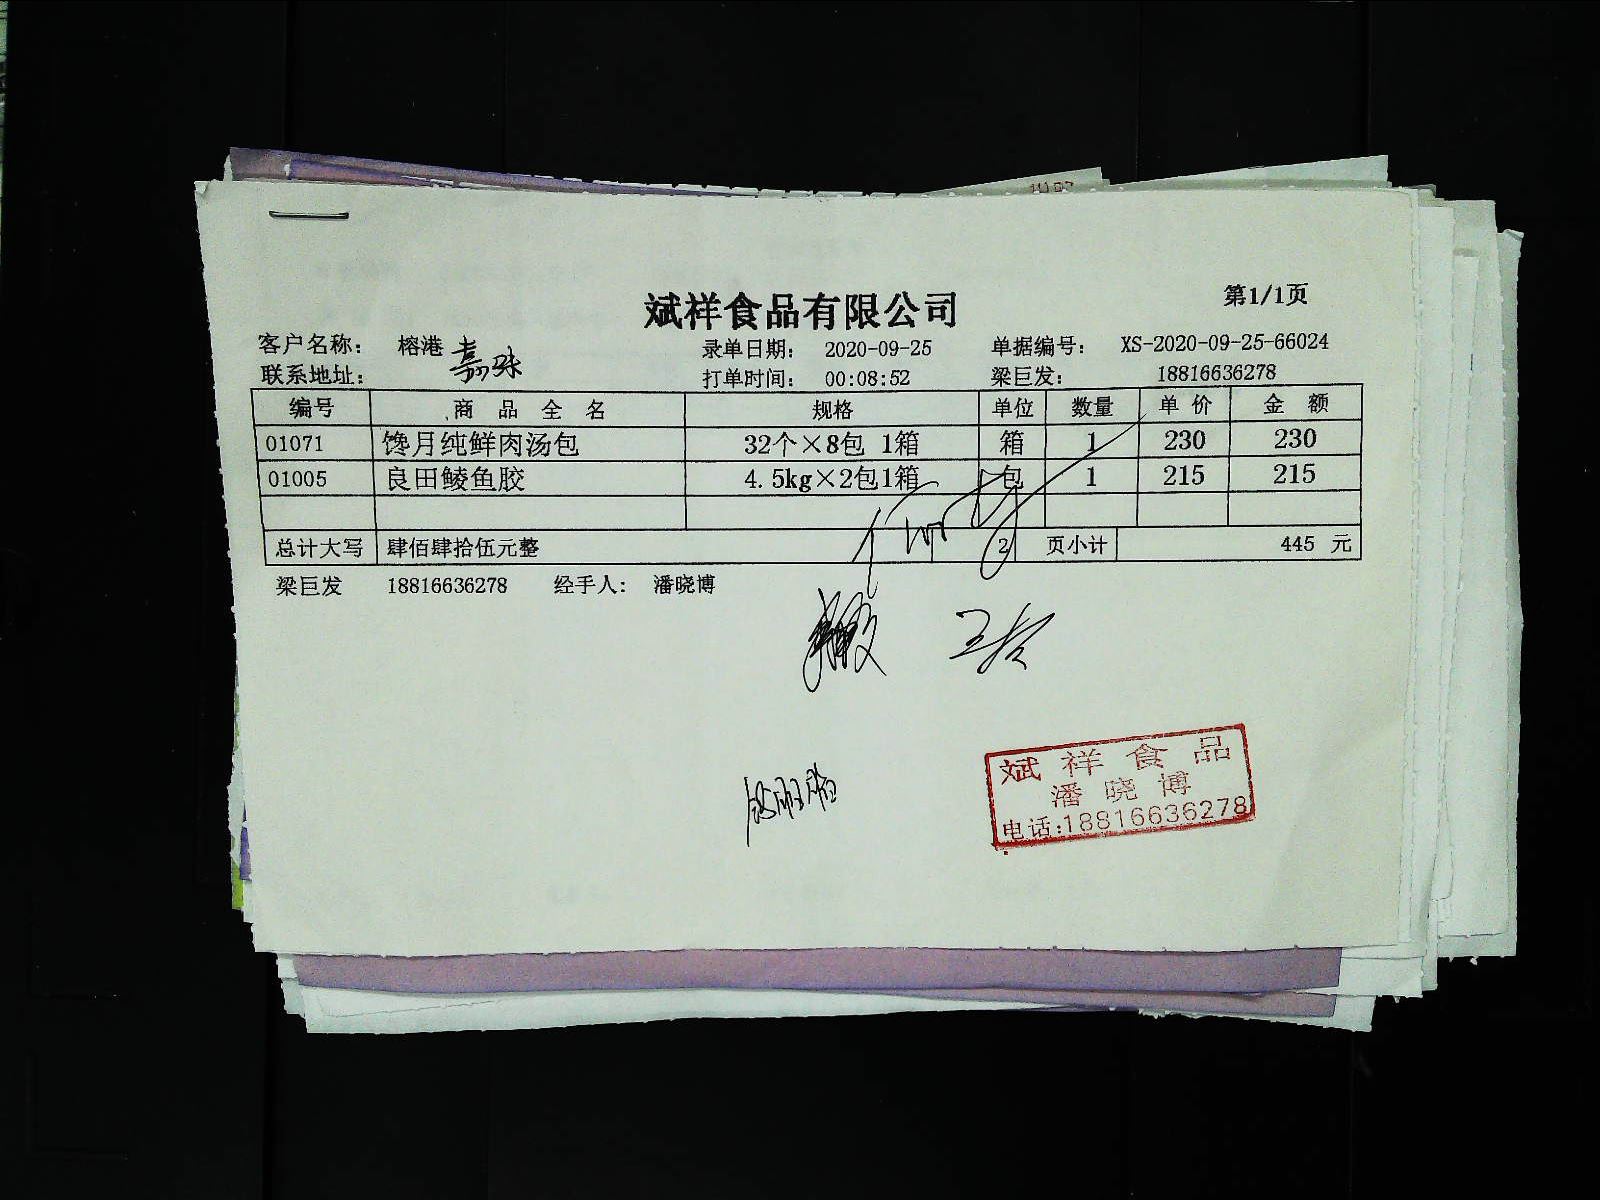 斌祥食品有限公司 第1/1页
客户名称: 榕港 嘉味 录单日期: 2020-09-25 单据编号: XS-2020-09-25-66024
联系地址: 打单时间: 00:08:52 梁巨发: 18816636278
编号 商 品 全 名 规格 单位 数量 单 价 金 额
01071 馋月纯鲜肉汤包 32个×8包 1箱 箱 1 230 230
01005 良田鲮鱼胶 4.5kg×2包1箱 包 1 215 215
总计大写 肆佰肆拾伍元整 2 页小计 445 元
梁巨发 18816636278 经手人: 潘晓博
斌祥食品
潘晓博
电话:18816636278